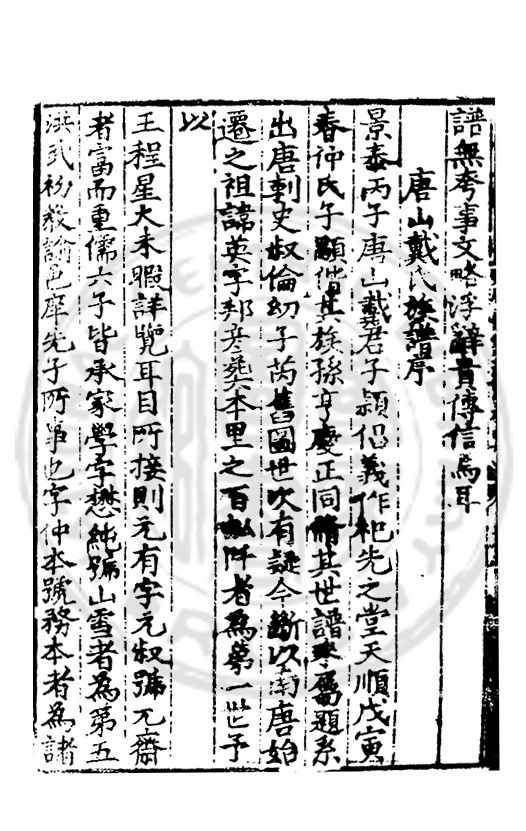 譜無夸事文略浮辭貴傳信焉耳
唐山戴氏族譜序
景泰丙子唐山戴君子頴侣義作祀先之堂天順戊寅
春仲氏子顒偕其族孫亨慶正同脩其世譜來屬題系
出唐刺史叔倫幼子芮舊圖世次有疑今斷以南唐始
遷之祖諱英字邦彦葬本里之百畝阡者爲第一世予
以
王程星大未暇詳覽耳目所接則元有字元叔號兀齋
者富而重儒六子皆承家學字懋純號山雪者爲第五
洪武初教諭邑庠先子所事也字仲本號務本者爲諸